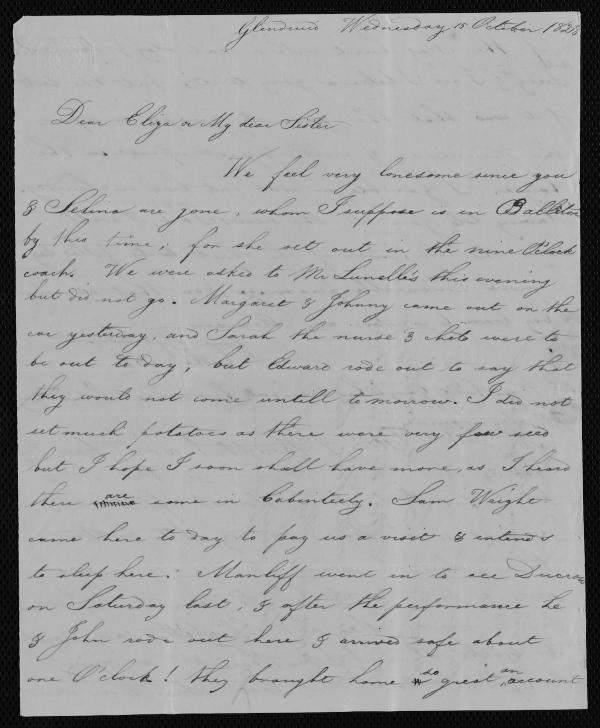 Glendruid Wednesday 15 October 1828
Dear Eliza or My dear Sister
We feel very lonesome since you
& Selina are gone, whom I suppose is in Ballitore
by this time; for she set out in the nine O'Clock
coach. We were asked to Mr this evening
but did not go. Margaret & Johnny came out on the
car yesterday, and Sarah the nurse & chets were to
be out to day, but Edward rode out to say that
they would not come untill tomorrow. I did not
set much potatoes as there were very few seed
but I hope I soon shall have more, as I heard
there are some in Cabinteely. Sam Wright
came here to day to pay us a visit & intends
to sleep here. Manliff went in to see Ducrow
on Saturday last, & after the performance he
& John rode out here & arrived safe about
one O'clock! they brought home so great an account